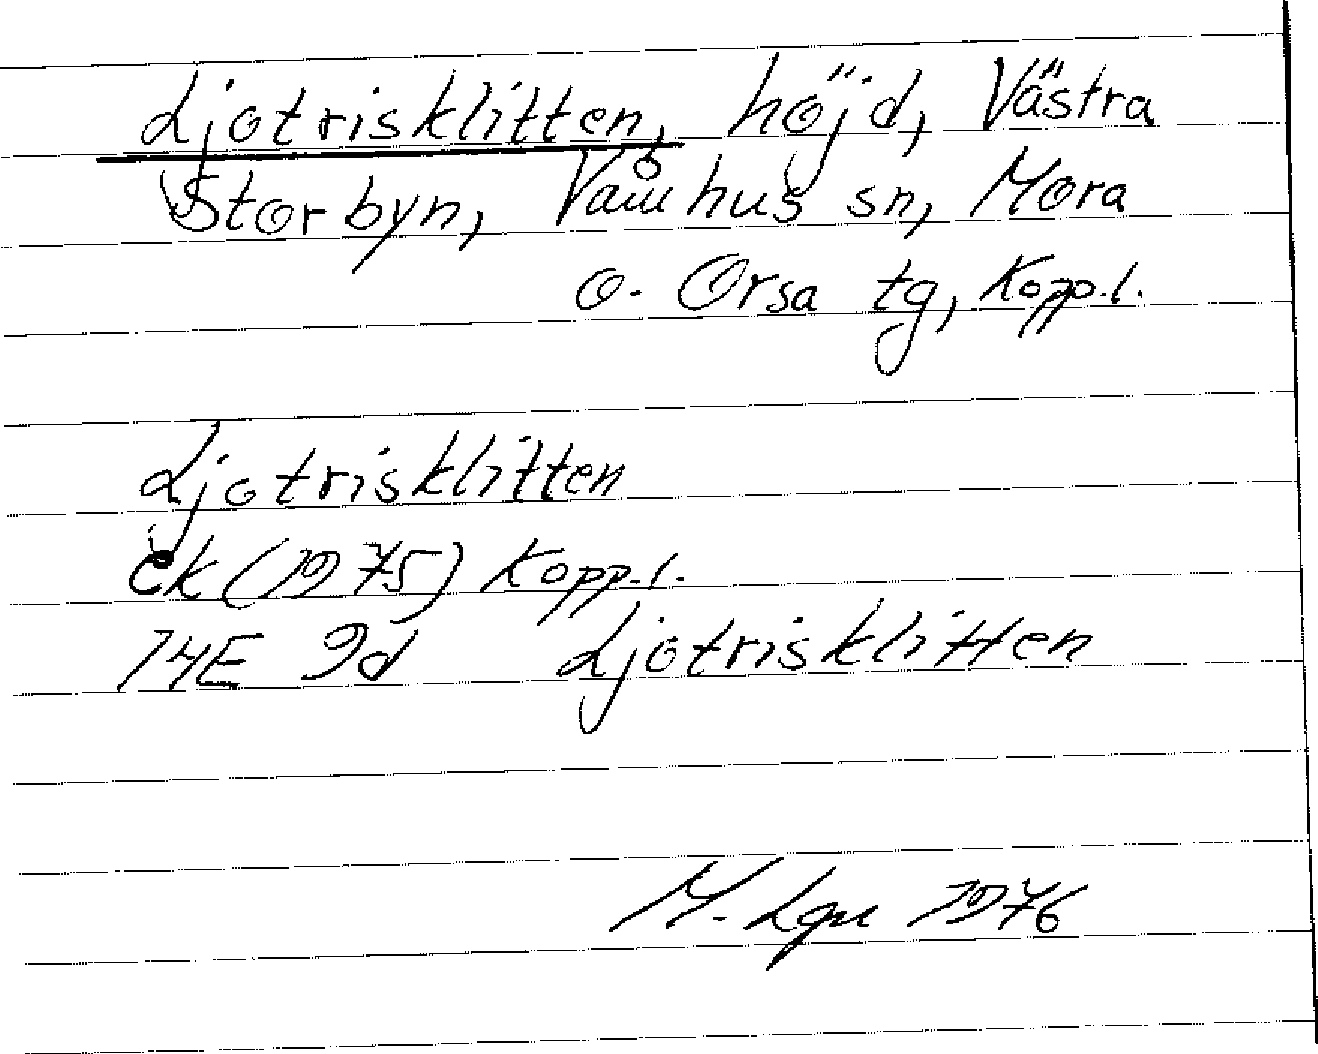 Ljotrisklitten, höjd, Västra
Storbyn, Våmhus sn, Mora
o. Orsa tg, Kopp.l.
Ljotrisklitten
ek (1975) Kopp.l.
14E 9d Ljotrisklitten
M. Lgn 1976